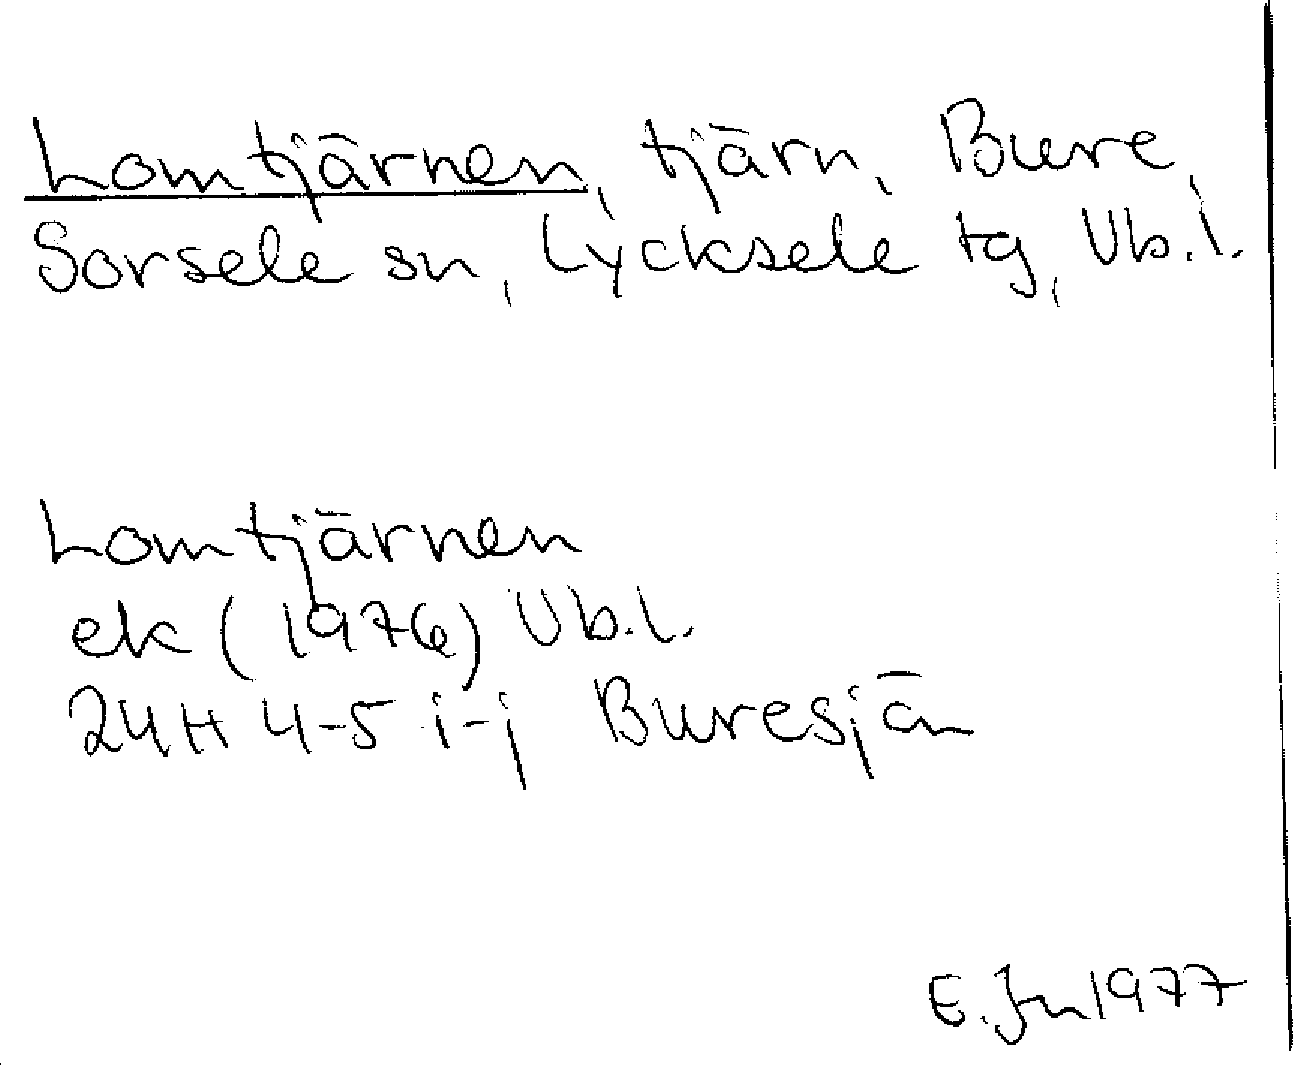 Lomtjärnen, tjärn, Bure,
Sorsele sn, Lycksele tg, Vb.l.
Lomtjärnen
ek (1976) Vb.l.
24H 4-5 i-j Buresjön
E. Jn 1977